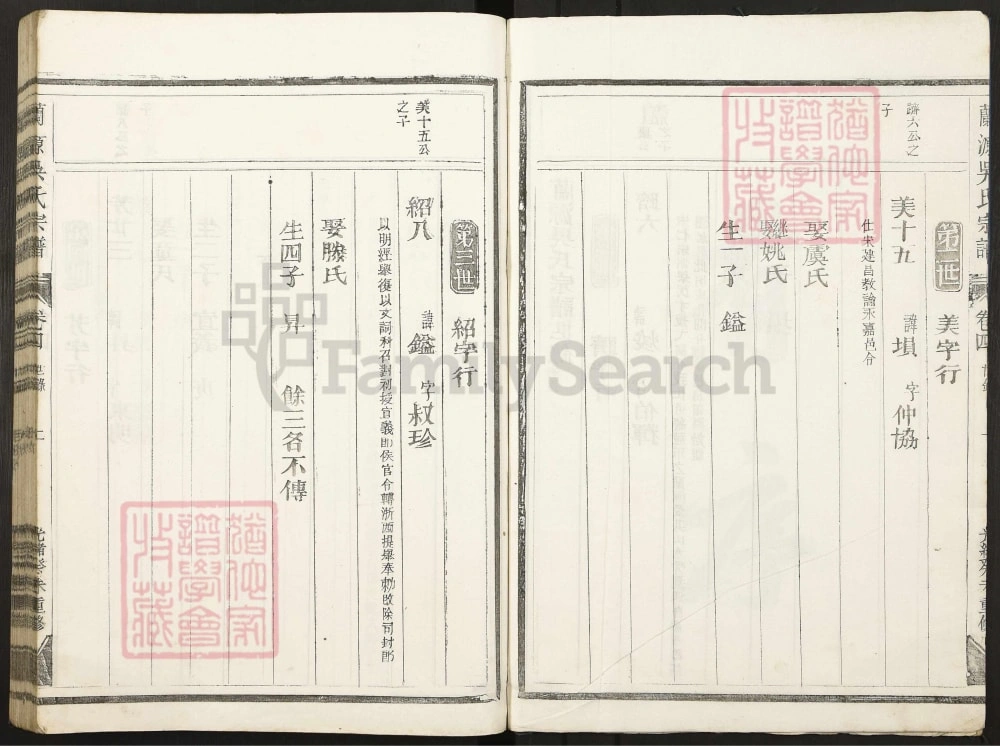 蘭源吳氏宗譜
卷四
第二世
美字行
蹟大公之
子
美十五
諱塤
字仲協
仕宋建昌教諭永嘉邑令
娶虞氏
繼姚氏
生一子
鎰
第三世
紹字行
美十五公
之子
紹八
諱鎰
字叔珍
以明經舉復以文詞科召對初授宣義郎侯官令轉浙西提舉奉勅改除司封郎
娶滕氏
生四子
昇
餘三名不傳
蘭源吳氏宗譜
卷四
世錄
光緒癸未重修
猶他家
譜學會
收藏
猶他家
譜學會
收藏
FamilySearch